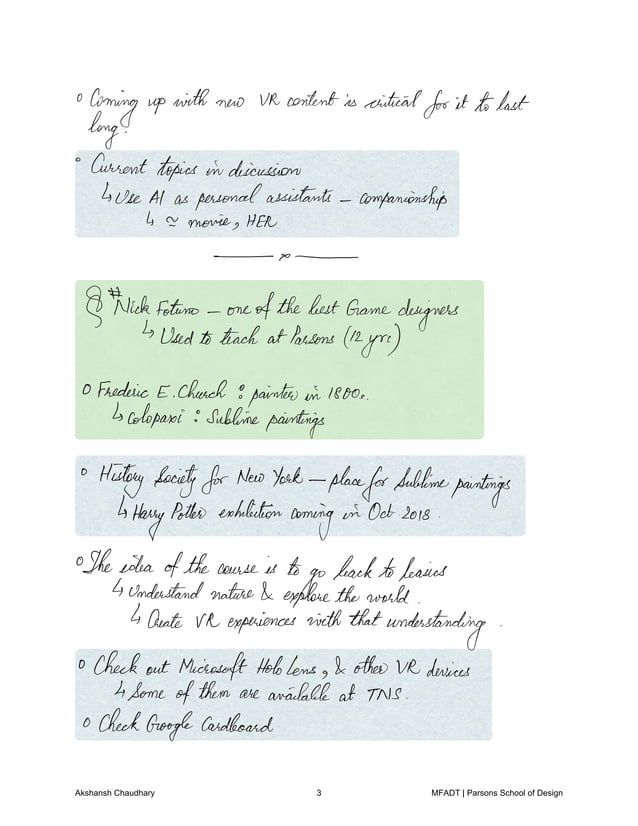 o Coming up with new VR content is critical for it to last
long.
o Current topics in discussion
↳ Use AI as personal assistants – companionship
↳ ≃ movie, HER
§ # Nick Fotuno – one of the best Game designers
↳ Used to teach at Parsons (12 yrs)
o Frederic E. Church : painter in 1800s.
↳ Cotopaxi : Sublime paintings
o History Society for New York – place for Sublime paintings
↳ Harry Potter exhibition coming in Oct 2018.
o The idea of the course is to go back to basics
↳ Understand nature & explore the world.
↳ Create VR experiences with that understanding.
o Check out Microsoft HoloLens, & other VR devices
↳ Some of them are available at TNS.
o Check Google Cardboard
Akshansh Chaudhary 3 MFADT | Parsons School of Design